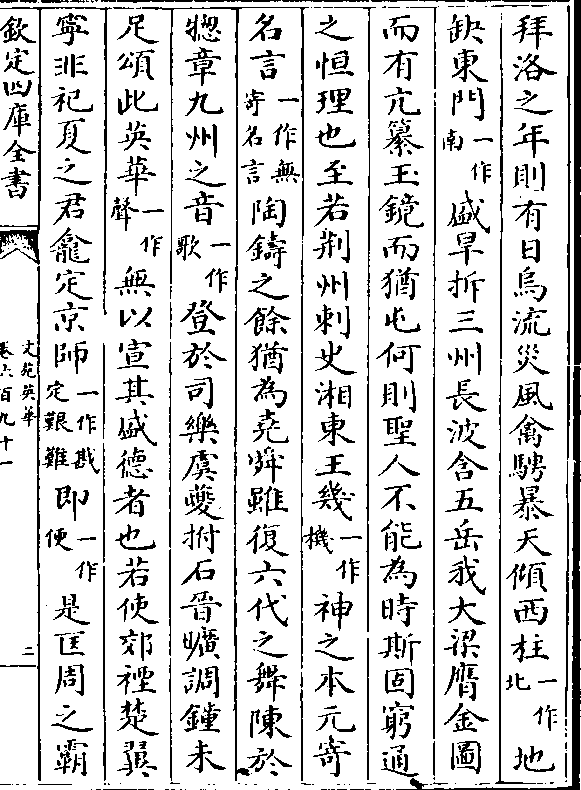 拜洛之年則有日烏流災風禽騁暴天傾西柱一作北地
缺東門一作南盛旱拆三州長波含五岳我大梁膺金圖
而有亢纂玉鏡而猶屯何則聖人不能為時斯固窮通
之恒理也至若荆州刺史湘東王幾一作機神之本元寄
名言一作無寄名言陶鑄之餘猶為堯舜雖復六代之舞陳於
摠章九州之音一作歌登於司樂虞夔拊石晉曠調鐘未
足頌此英華一作聲無以宣其盛德者也若使郊禋楚翼
寧非祀夏之君龕定京師一作戡定艱難即一作便是匡周之霸
欽定四庫全書
文苑英華
卷六百九十一
二